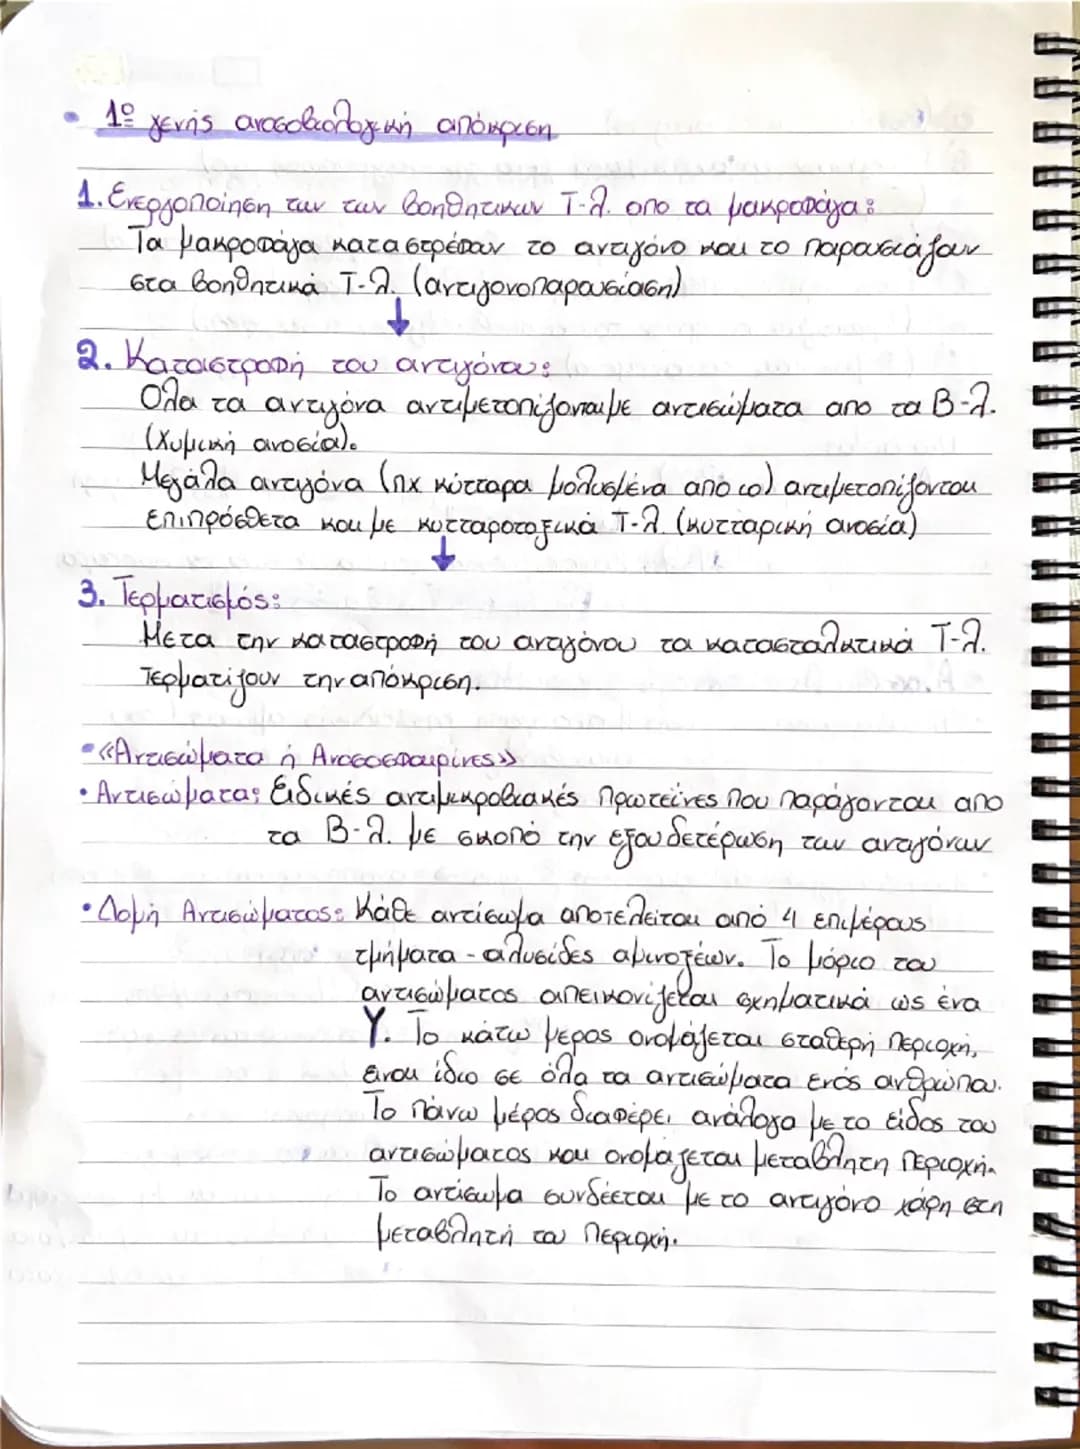 • 1º γενής ανοσοβιολογική απόκριση
1. Ενεργοποίηση των των βοηθητικών Τ-λ. απο τα μακροφάγα:
Τα μακροφάγα καταστρέφουν το αντιγόνο και το παρουσιάζουν
στα βοηθητικά Τ-λ. (αντιγονοπαρουσίαση)
↓
2. Καταστροφή του αντιγόνου:
Όλα τα αντιγόνα αντιμετοπίζονται με αντισώματα απο τα Β-λ.
(Χυμική ανοσία).
Μεγάλα αντιγόνα (πχ κύτταρα μολυσμένα από ιο) αντιμετοπίζονται
επιπρόσθετα και με κυτταροτοξικά Τ-λ. (κυτταρική ανοσία)
↓
3. Τερματισμός:
Μετα την καταστροφή του αντιγόνου τα κατασταλτικά Τ-λ.
Τερματίζουν την απόκριση.
• «Αντισώματα ή Ανοσοσφαιρίνες»
• Αντισώματα: Ειδικές αντιμικροβιακές πρωτεΐνες που παράγονται απο
τα Β-λ. με σκοπό την εξουδετέρωση των αντιγόνων
• Δομή Αντισώματος: Κάθε αντίσωμα αποτελείται από 4 επιμέρους
τμήματα - αλυσίδες αμινοξέων. Το μόριο του
αντισώματος απεικονίζεται σχηματικά ως ένα
Υ. Το κάτω μερος ονομάζεται σταθερή περιοχή,
ειναι ίδιο σε όλα τα αντισώματα ενός ανθρώπου.
Το πάνω μέρος διαφέρει ανάλογα με το είδος του
αντισώματος και ονομάζεται μεταβλητη περιοχή.
Το αντίσωμα συνδέεται με το αντιγόνο χάρη στη
μεταβλητή του περιοχή.